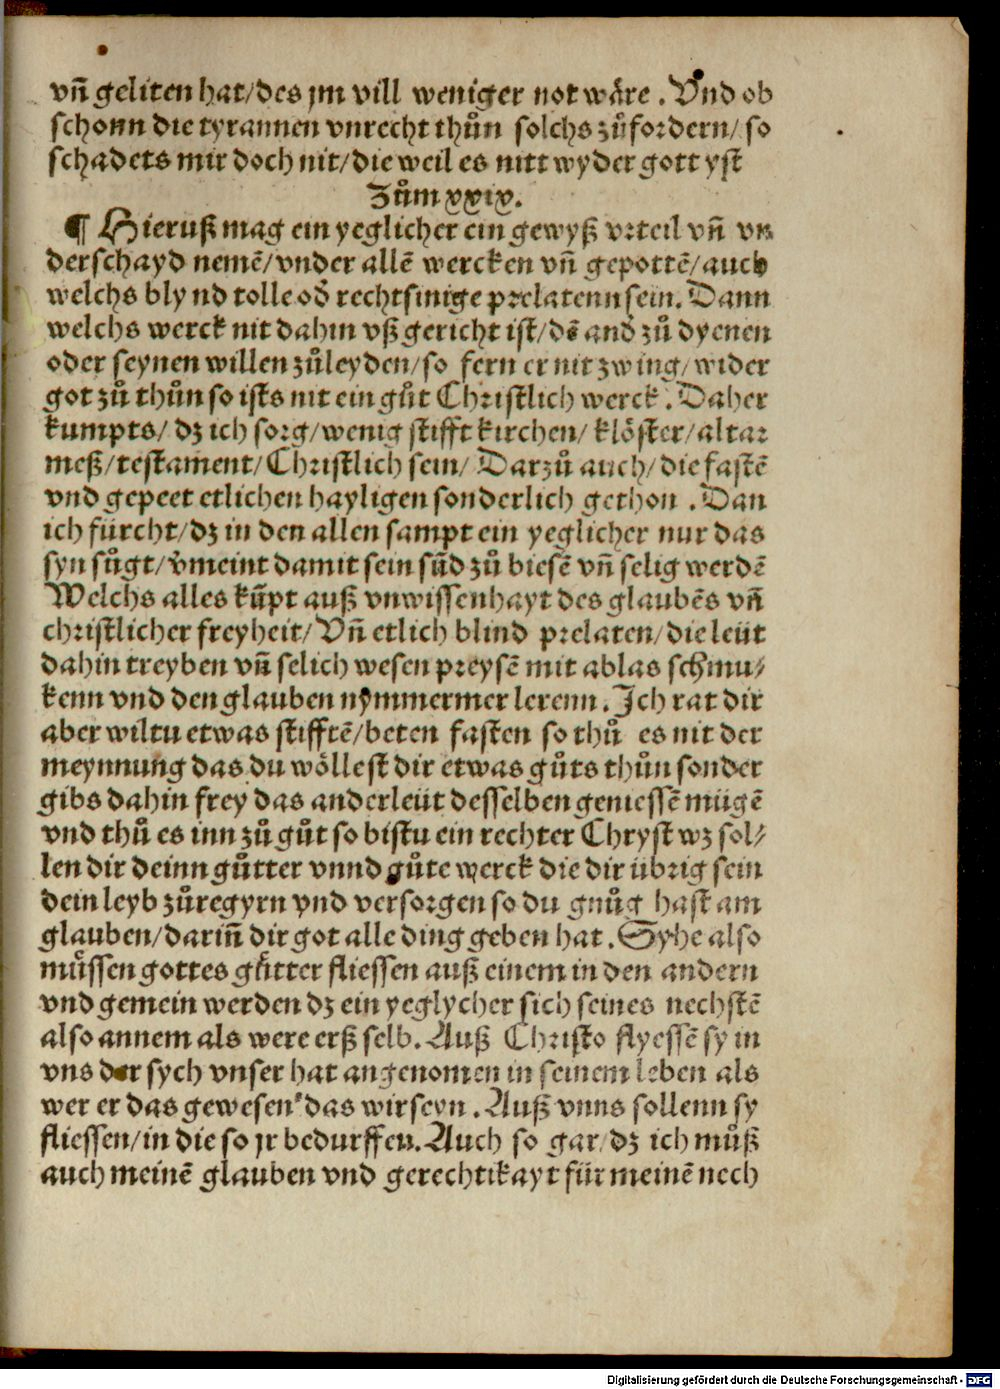 vñ geliten hat/des jm vill weniger not wåre. Vnd ob
schonn die tyrannen vnrecht thůn solchs zůfordern/ so
schadets mir doch nit/die weil es nitt wyder gott yst
Zům xxix.
¶ Hieruß mag ein yeglicher ein gewyß vrteil vñ vn
derschayd nemẽ/vnder allẽ wercken vñ gepottẽ/auch
welchs blynd tolle oď rechtsinige prelatenn sein. Dann
welchs werck nit dahin vß gericht ist/dẽ anď zů dyenen
oder seynen willen zůleyden/so fern er nit zwing/wider
got zů thůn so ists nit ein gůt Christlich werck. Daher
kumpts/ dz ich sorg/wenig stifft kirchen/ klöster/altar
meß/testament/Christlich sein/ Darzů auch/die fastẽ
vnd gepeet etlichen hayligen sonderlich gethon . Dan
ich fürcht/dz in den allen sampt ein yeglicher nur das
syn sůgt/v̉meint damit sein sũd zů biesẽ vñ selig werdẽ
Welchs alles kũpt auß vnwissenhayt des glaubẽs vñ
christlicher freyheit/ Vñ etlich blind prelaten/die leüt
dahin treyben vñ selich wesen preysẽ mit ablas schmu⸗
kenn vnd den glauben nymmermer lerenn. Ich rat dir
aber wiltu etwas stifftẽ/beten fasten so thů es nit der
meynnung das du wöllest dir etwas gůts thůn sonder
gibs dahin frey das anderleüt desselben geniessẽ mügẽ
vnd thů es inn zů gůt so bistu ein rechter Chryst wz sol⸗
len dir deinn gůtter vnnd gůte werck die dir übrig sein
dein leyb zůregyrn vnd versorgen so du gnůg hast am
glauben/dariñ dir got alle ding geben hat. Syhe also
můssen gottes gůtter fliessen auß einem in den andern
vnd gemein werden dz ein yeglycher sich seines nechstẽ
also annem als were erß selb. Auß Christo flyessẽ sy in
vns der sych vnser hat angenomen in seinem leben als
wer er das gewesen das wir seyn. Auß vnns sollenn sy
fliessen/in die so jr bedurffen. Auch so gar/dz ich můß
auch meinẽ glauben vnd gerechtikayt für meinẽ nech
Digitalisierung gefördert durch die Deutsche Forschungsgemeinschaft - DFG